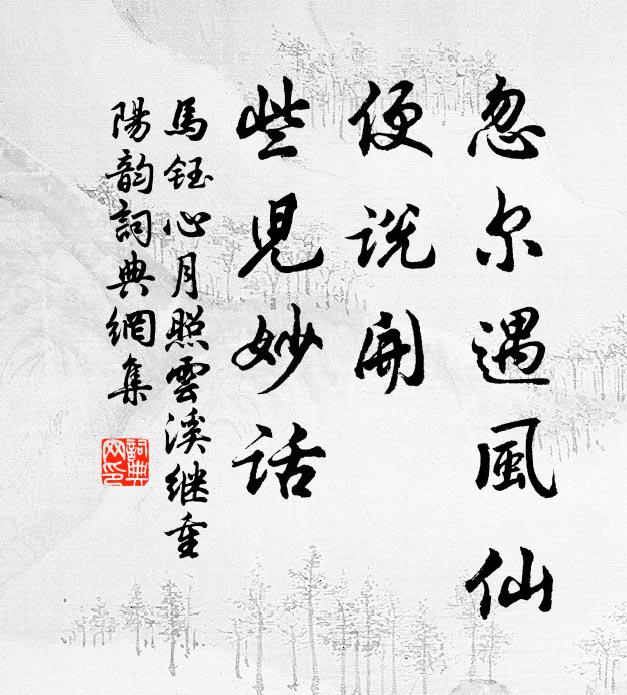 忽尔遇風仙
便说開
些兒妙话
馬钰心月照雲溪继重
陽韵詞典網集
詞典网印